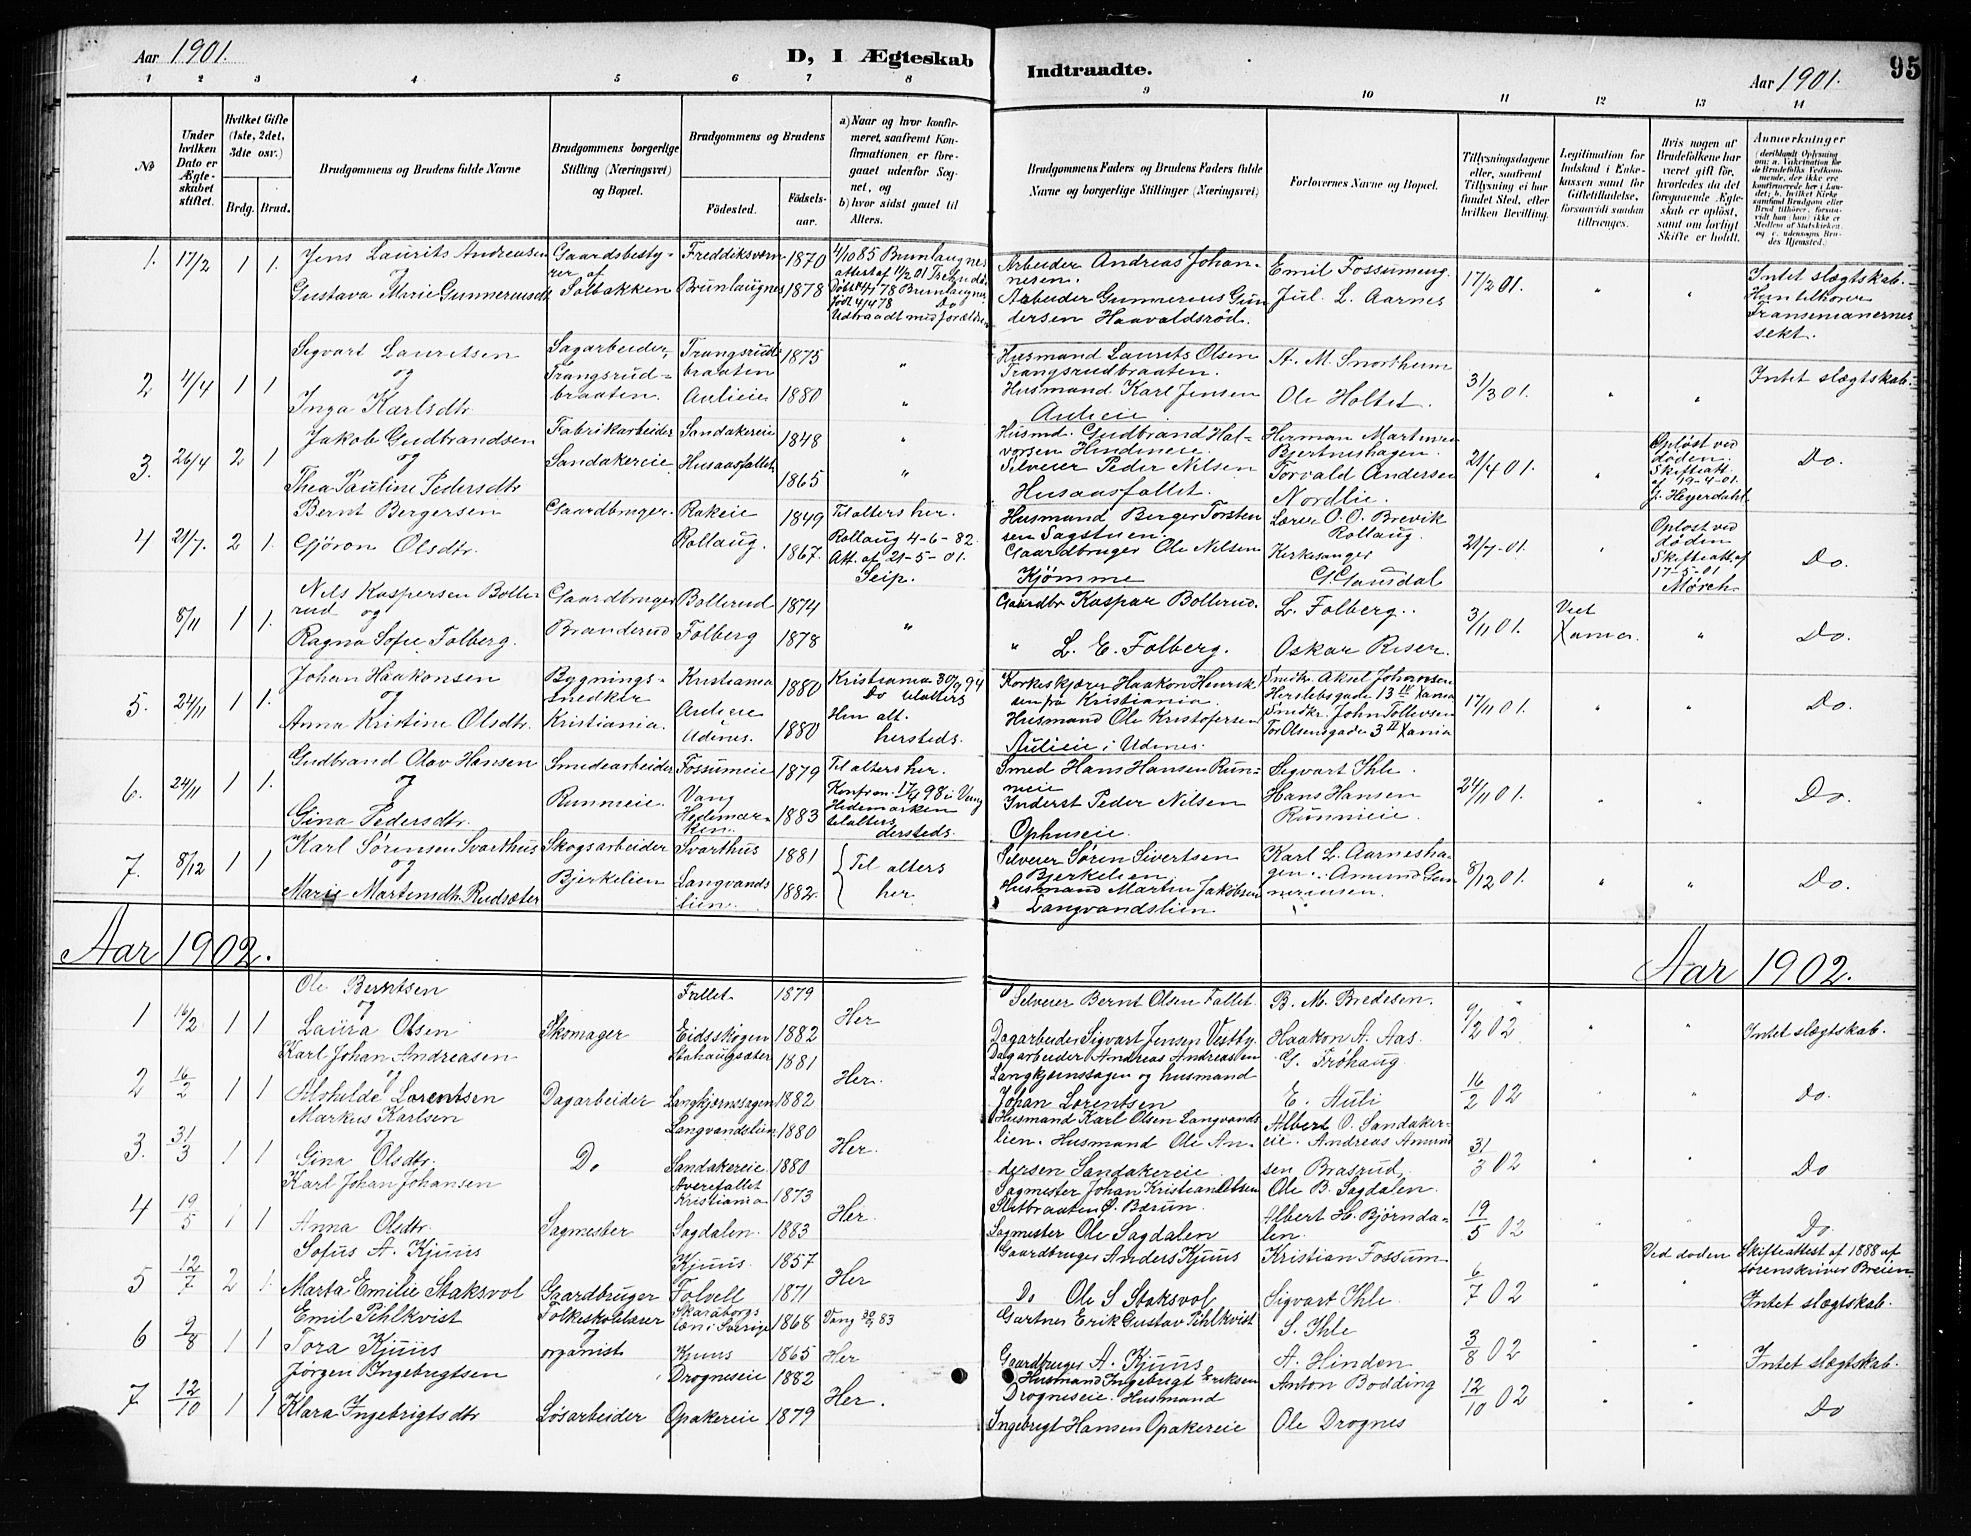 Aar 1901.
D, I Ægteskab
Indtraadte.
Aar 1901.
95
1 2 3 4 5 6 7 8 9 10 11 12 13 14
No
Under hvilken Dato er Ægteskabet stiftet.
Hvilket Gifte (1ste, 2det, 3die osv.)
Brdg. Brud.
Brudgommens og Brudens fulde Navne
Brudgommens borgerlige Stilling (Næringsvei) og Bopæl.
Brudgommens og Brudens
Fødested.
Fødsels-aar.
a) Naar og hvor konfirmeret, saafremt Konfirmationen er foregaaet udenfor Sognet, og
b) hvor sidst gaaet til Alters.
Brudgommens Faders og Brudens Faders fulde Navne og borgerlige Stillinger (Næringsvei)
Forlovernes Navne og Bopæl.
Tillysningsdagene eller, saafremt Tillysning ei har fundet Sted, efter hvilken Bevilling.
Legitimation for Indskud i Enkekassen samt for Giftetilladelse, forsaavidt saadan tiltrænges.
Hvis nogen af Brudefolkene har været gift før, hvorledes da det foregaaende Ægteskab er opløst, samt om lovligt Skifte er holdt.
Anmerkninger
1. 17/2 1 1. Jens Laurits Andreasen Gaardsbesty- Freddiksværn 1870 4/10 85 Brunlaugnes Arbeider Andreas Johan- Emil Fossumeng 17/2 01. " " Intet slægtskab.
og rer af attest af 11/2 01 nesen.
Gustava Marie Gunnereusdtr Solbakken Brunlaugnes 1878 Døbt 14/7 78 Brunlaugnes Arbeider Gunnereus Gun- Jul. L. Aarnes
født 4/4 78 Do dersen Haavaldsrød. Fransenianernes
Udtraadt med forældre sekt.
2 4/4 1 1 Sigvart Lauritsen Sagarbeider, Trangsrud- 1875 " Husmand Laurits Olsen A. M. Snortheim 31/3 01. " " Intet slægtskab.
og Trangsrud- braaten Trangsrudbraaten.
Inga Karlsdtr braaten. Aulieie 1880 " Husmand Karl Jensen Ole Holtet.
Aulieie
3. 26/4 2 1 Jakob Gudbrandsen Fabrikarbeider Sandakereie 1848 " Husmd. Gudbrand Hal- Herman Martinsen 21/4 01. " Opløst ved døden. Skifteatt. af 19-4-01. J. Heyerdahl Do.
og vorsen Hindineie Bjertneshagen.
Thea Pauline Pedersdtr Sandakereie. Husaasfallet 1865 " Selveier Peder Nilsen Torvald Andersen
Husaasfallet. Nordlie.
4 21/7. 2 1. Bernt Bergersen Gaardbruger. Rakeie 1849 Til alters her. Husmand Berger Torsten Lærer O. O. Brevik 21/7-01. " Opløst ved døden Skifteatt. af 17-5-01 Mørch Do.
Rollaug 4-6-82. sen Sagstuen. Rollaug.
Gjøron Olsdtr. Rollaug. 1867. Att. af 21-5-01. Gaardbruger Ole Nilsen Kirkesanger
Seip. Kjømme G. Gausdal
8/11 1 1. Nils Kaspersen Bolle- Gaardbruger Bollerud 1874 " Gaardbr Kaspar Bollerud. L. Folberg. 3/11 01. Vut Xania. " Do.
rud og
Ragna Sofie Folberg. Branderud Folberg 1878 " L. E. Folberg. Oskar Risen.
5. 24/11 1 1. Johan Haakonsen Bygnings- Kristiania 1880 Kristiania 30/9 94 Korkeskjærer Haakon Henrik- Snedkr. Aksel Johansen 17/11 01. " " Do.
og snedker Do tilalters sen fra Kristiania. Herslebsgade 13 IV Xania
Anna Kristine Olsdtr. Kristiania. Aulieie Udenes. 1880 Hun alt. hersteds. Husmand Ole Kristofersen Snedkr. John Tollevsen
Aulieie i Udenes. Tor Olsensgade 3 II Xania
6. 24/11 1 1. Gudbrand Olav Hansen Smedearbeider Fossumeie 1879 Til alters her. Smed Hans Hansen Run- Sigvart Ihle. 24/11 01. " " Do.
og Runmeie. Vang Konfrm. 98 i Vang meie Hans Hansen
Gina Pedersdtr. Hedemar- 1883 Hedemarken Inderst Peder Nilsen Runmeie.
ken. tilalters dersteds. Ophuseie.
7. 8/12 1 1 Karl Sørensen Svarthus Skogsarbeider Svarthus 1881 Til alters her Selveier Søren Sivertsen Karl L. Aarnesha- 8/12 01. " " Do.
og Bjerkelien Bjerkelien gen. Amund Gun-
Marie Martinsdtr. Rudsæter Langvands- 1882. Husmand Martin Jakobsen nerensen.
lien. Langvandslien
Aar 1902. Aar 1902.
1 16/2 1 1 Ole Berntsen Fallet 1879 Her Selveier Bernt Olsen Fallet B. M. Bredesen. 9/2 02 " " Intet slægtskab.
og
Laura Olsen Skomager Eidsskogen 1882 Dagarbeider Sigvart Jensen Vestby. Haakon A. Aas.
2 16/2 1 1 Karl Johan Andreasen Stahaugsæter 1881 Her. Dagarbeider Andreas Andreassen G. Frøhaug. 16/2 02 " " Do.
og Langkjærnssagen og husmand
Alshilde Lorentsen Dagarbeider Langkjærnssagen 1882 Johan Lorentsen E. Auli
3. 31/3 1 1 Markus Karlsen Langvandslien 1880 Her. Husmand Karl Olsen Langvands- Albert O. Sandaker- 31/3 02 " " Do
og lien. Husmand Ole An- eie. Andreas Amund-
Gina Olsdtr. Do Sandakereie. 1880 dersen Sandakereie sen Brasrud.
4 19/5 1 1 Karl Johan Johansen Averefallet Kristiania 1873 Her. Sagmester Johan Kristian Olsen Ole B. Sagdalen. 19/5 02 " " Do.
Slitbraaten Ø. Bærum. Albert H. Bjørnda-
Anna Olsdtr. Sagmester Sagdalen 1883 Sagmester Ole Sagdalen len.
5 12/7 2 1. Sofus A. Kjuus Kjuus. 1857 Her Gaardbruger Anders Kjuus Kristian Fossum 6/7 02 " Ved døden Skifteattest af 1888 af
sorenskriver Breien.
Marta Emilie Staksvol Gaardbruger Folvell 1871 Do Ole S Staksvol Sigvart Ihle Intet slægtskab.
6 9/8 1 1 Emil Pihlkvist Folkeskolelærer Skaraborgs 1868 Vang 30/9 83 Gartner Erik Gustav Pihlkvist S. Ihle 3/8 02
og læn i Sverige
Tora Kjuus organist Kjuus 1865 Her Gaardbruger A. Kjuus A. Hinden Intet slægtskab.
7 12/10 1 1 Jørgen Ingebregtsen Drogneseie 1882 Her. Husmand Ingebrigt Eriksen Anton Bodding 12/10 02 " " Do
Drogneseie. Husmand
Klara Ingebrigtsdtr Løsarbeider Opakereie 1879 Ingebrigt Hansen Opakereie Ole Drognes